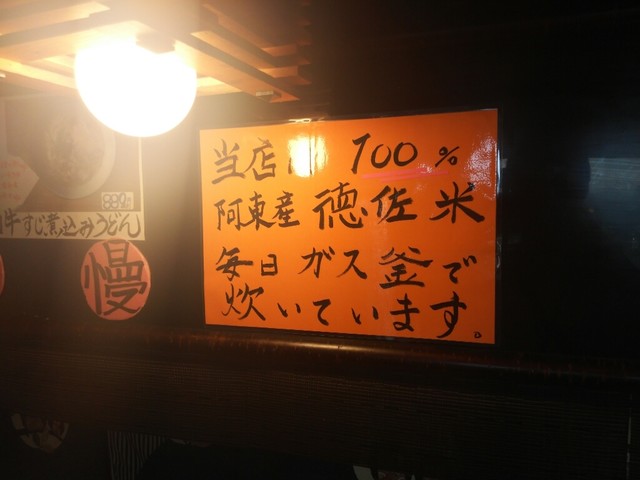 当店 100%
阿東産 徳佐米
毎日 ガス釜で
炊いています。
牛すじ煮込みうどん
慢